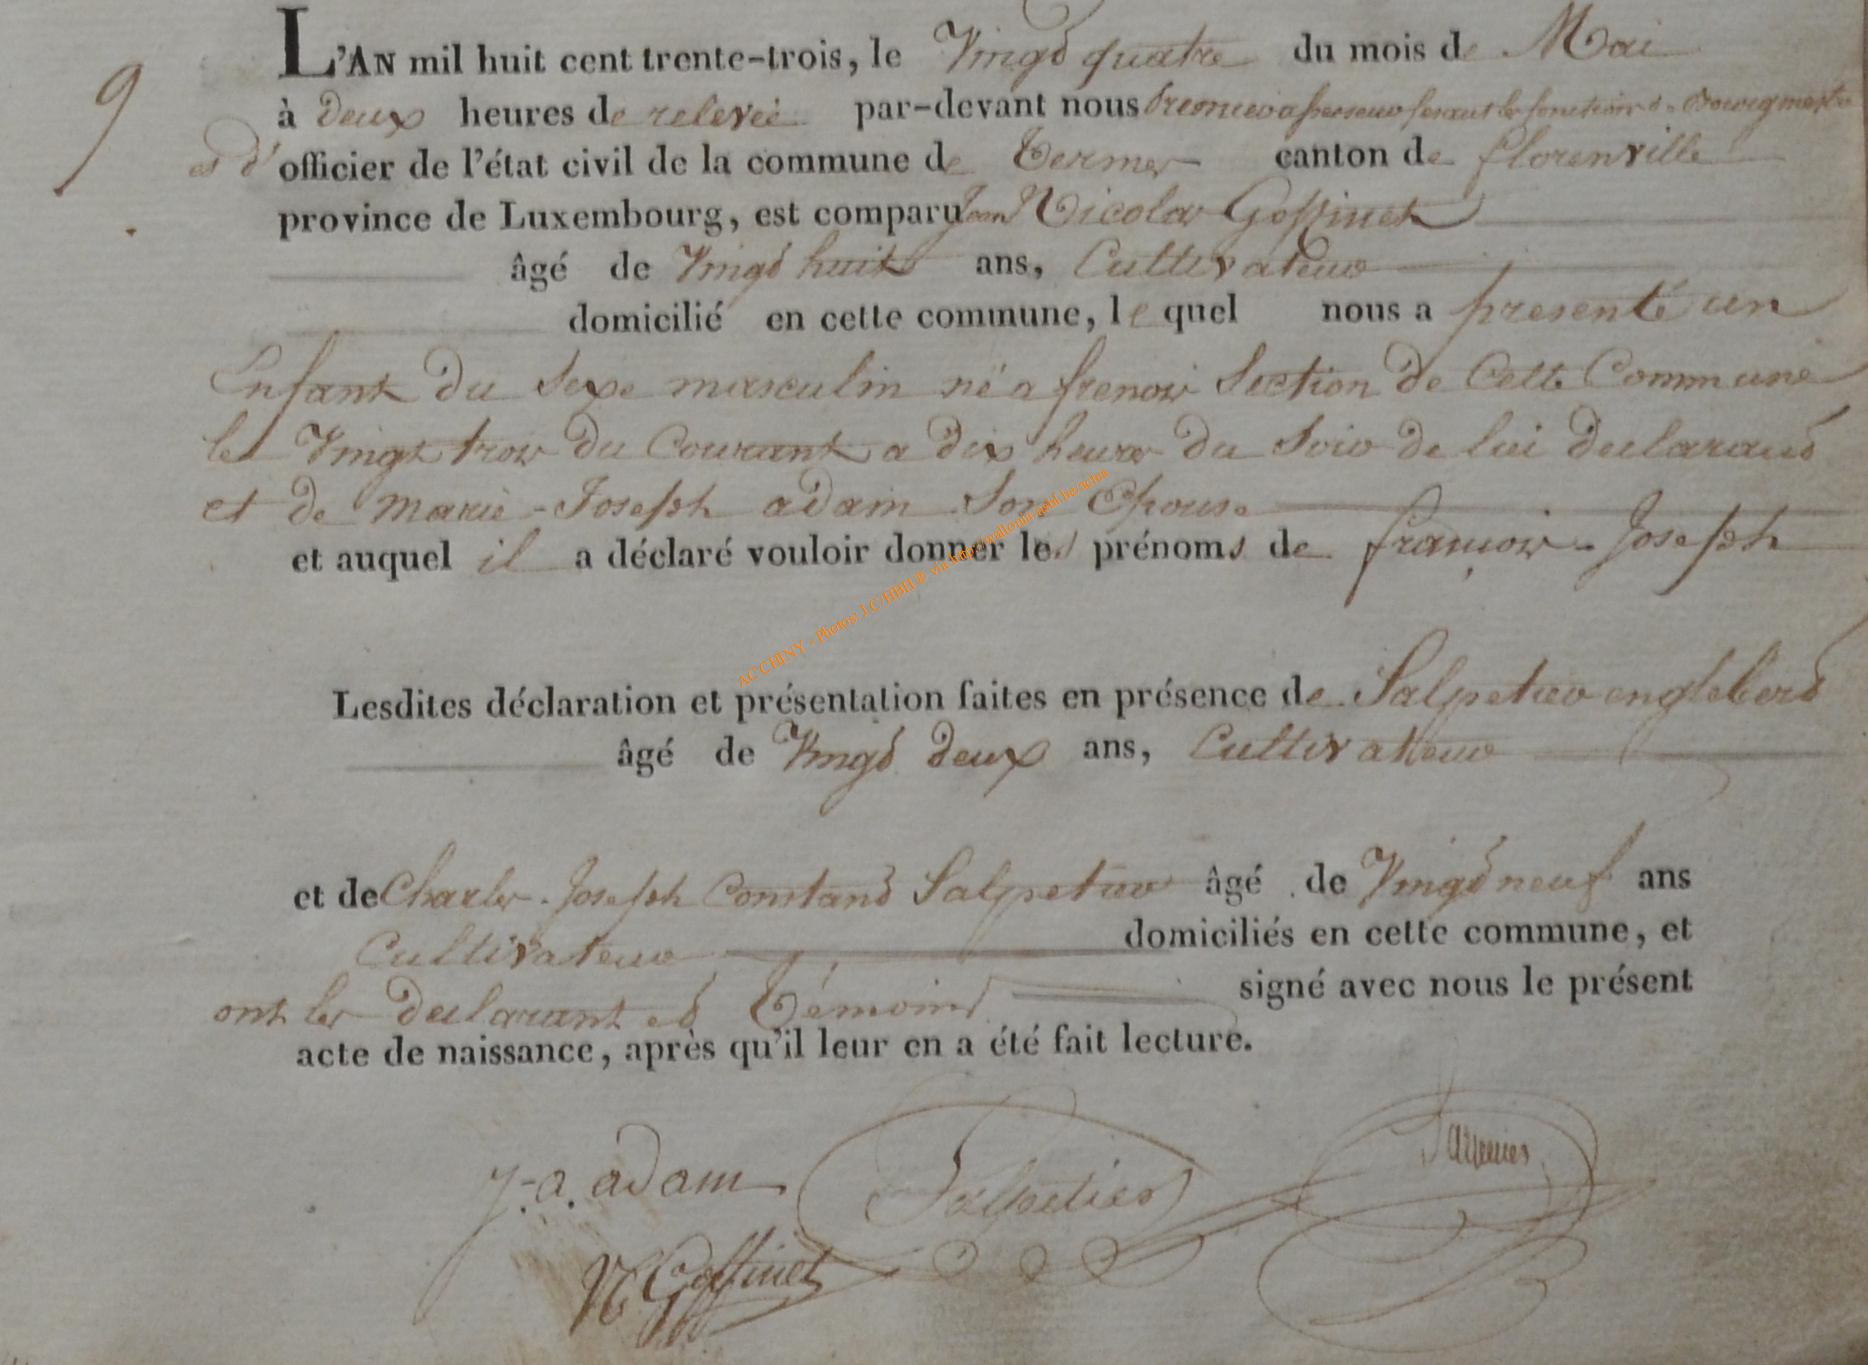 L'AN mil huit cent trente-trois, le Vingt quatre du mois de Mai
9
à Deux heures de relevée par-devant nous Premier assesseur fesant les fonctions de Bourgmestre
et d' officier de l'état civil de la commune de Termes canton de florenville
province de Luxembourg, est comparu Jean Nicolas Goffinet
âgé de Vingt huit ans, Cultivateur
domicilié en cette commune, le quel nous a presenté un
Enfant du Sexe masculin né a frenois Section de Cette Commune
le Vingt trois du Courant a dix heures du Soir de lui declarant
et de marie-Joseph adam Son Epouse
et auquel il a déclaré vouloir donner les prénoms de françois-Joseph
AC CHINY - Photos J.C HBIL®
Lesdites déclaration et présentation faites en présence de Salpetier englebert
âgé de Vingt deux ans, Cultivateur
et de Charles-Joseph Constant Salpetier âgé de Vingt neuf ans
Cultivateur domiciliés en cette commune, et
ont les declarant et Témoins signé avec nous le présent
acte de naissance, après qu'il leur en a été fait lecture.
J-a. adam Salpetier
N Goffinet